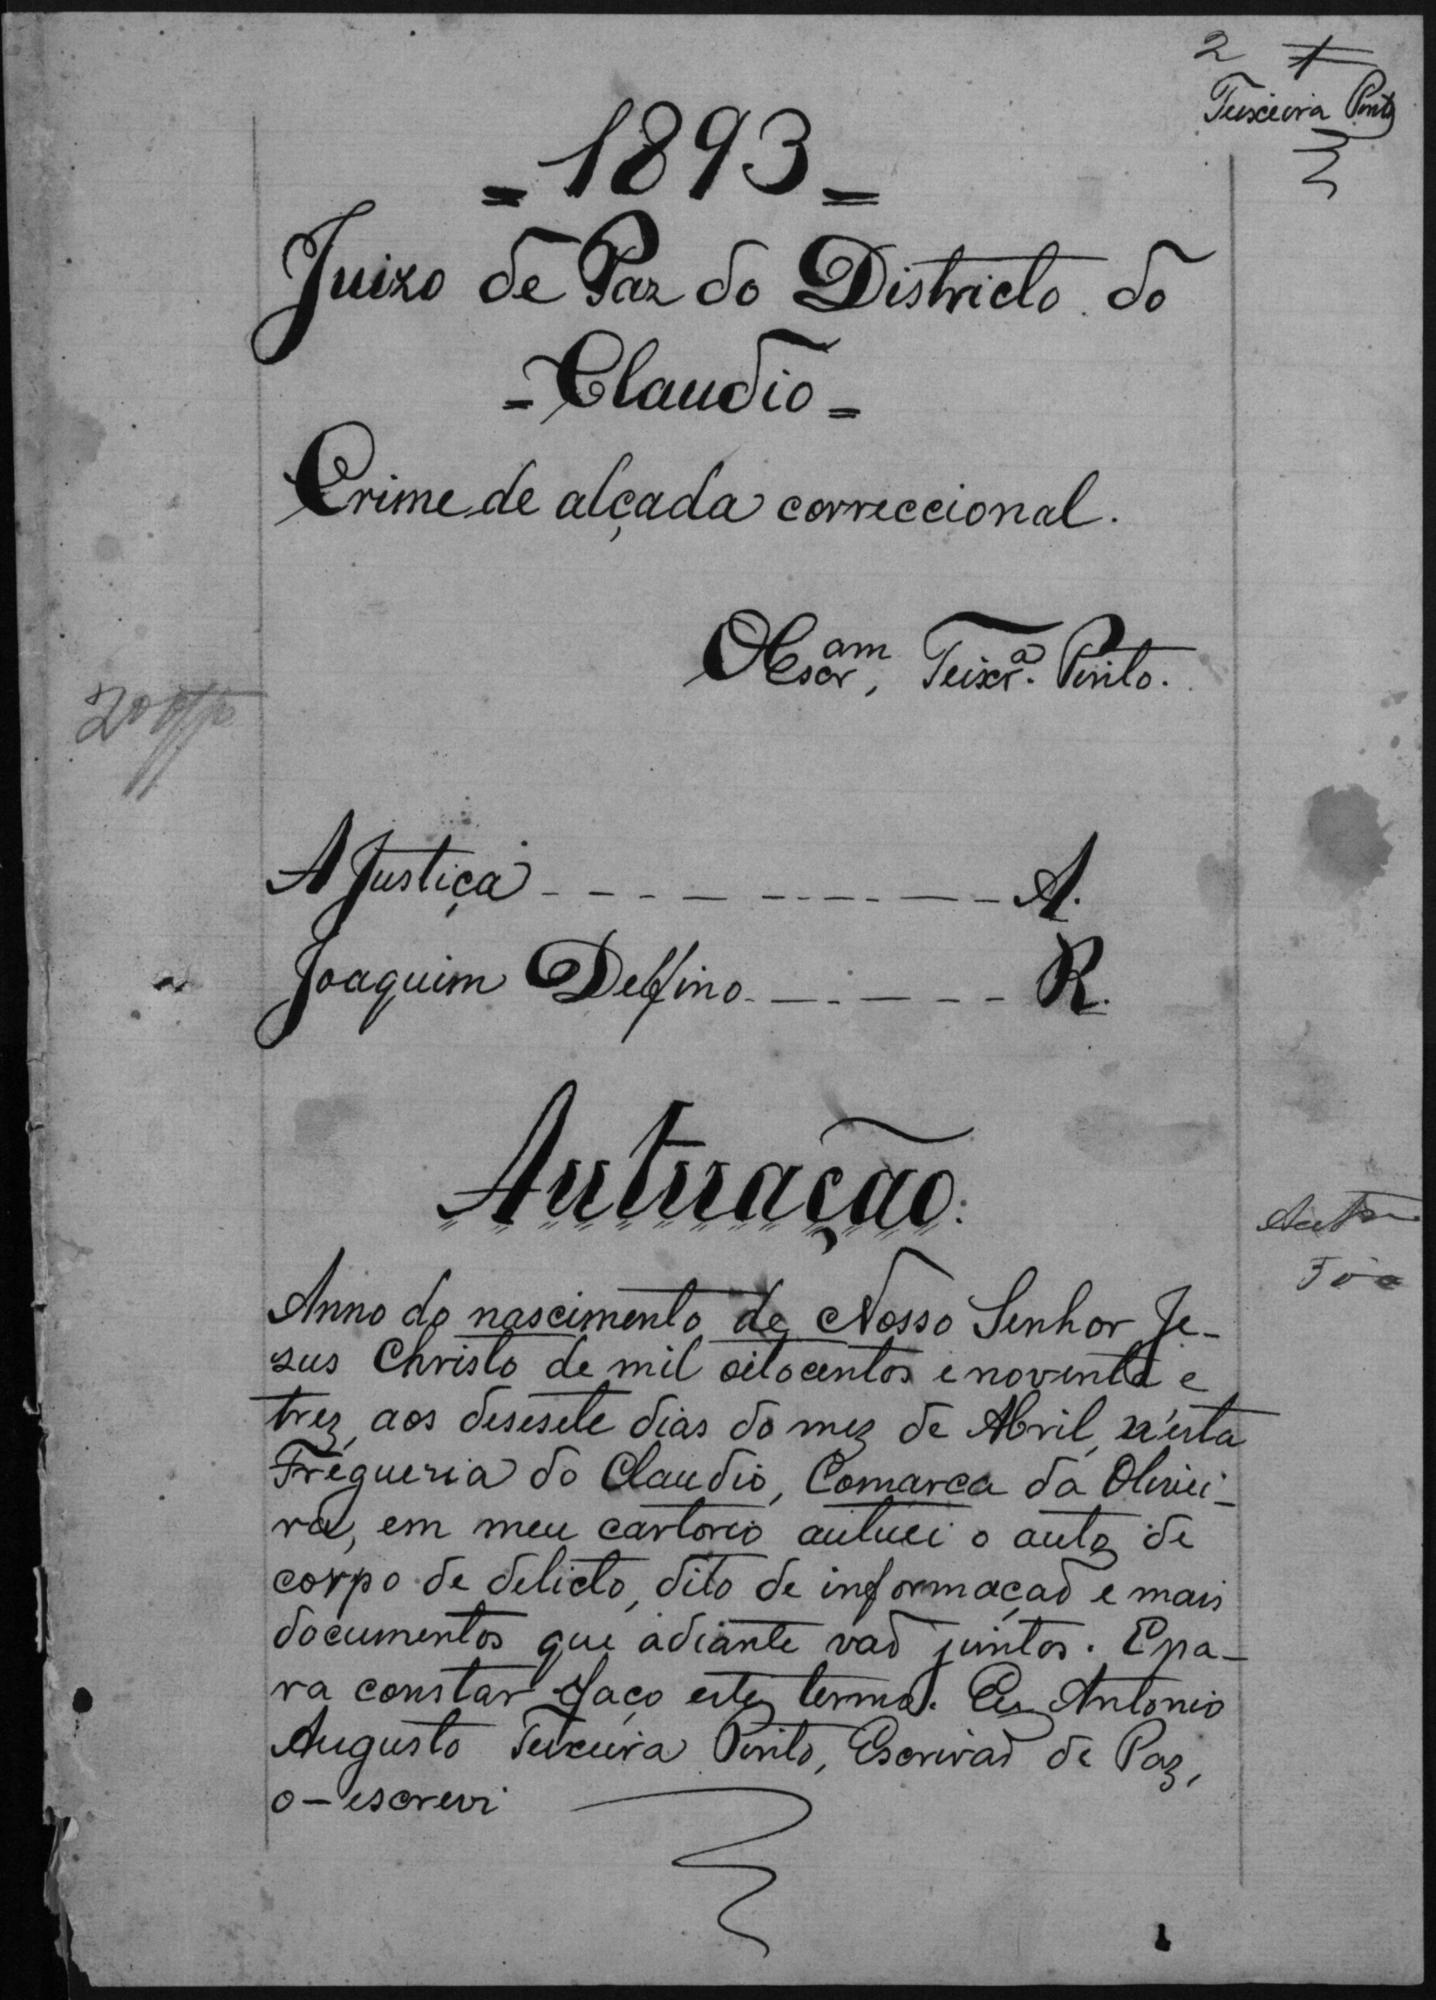 2 1
Teixeira Pinto
= 1893 =
Juizo de Paz do Districto do
= Claudio =
Crime de alçada correccional.
O Escr.am, Teixr.a Pinto.
A Justiça - - - - - - - - - A.
Joaquim Delfino - - - - - - - R.
Autuação:
Anno do nascimento de Nosso Senhor Je-
sus Christo de mil oitocentos e noventa e
trez, aos desesete dias do mez de Abril, n'esta
Freguezia do Claudio, Comarca da Olivei-
ra, em meu cartorio autuei o auto de
corpo de delicto, dito de informação e mais
documentos que adiante vaõ juntos. E pa-
ra constar faço este termo. Eu Antonio
Augusto Teixeira Pinto, Escrivaõ de Paz,
o-escrevi